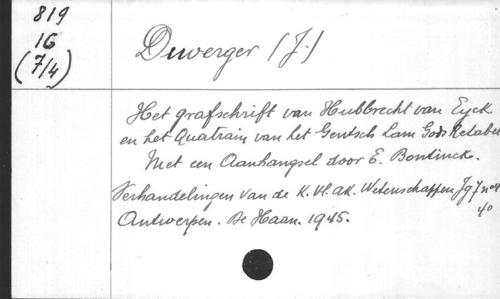 819
16
(7/4)
Duverger (J.)
Het grafschrift van Hubbrecht van Eyck
en het Quatrain van het Gentsch Lam Gods Retabel
Met een Aanhangsel door E. Bontinck.
Verhandelingen van de K. Vl. Ak. Wetenschappen Jg 7 nº 4
4º
Antwerpen. De Haan. 1945.